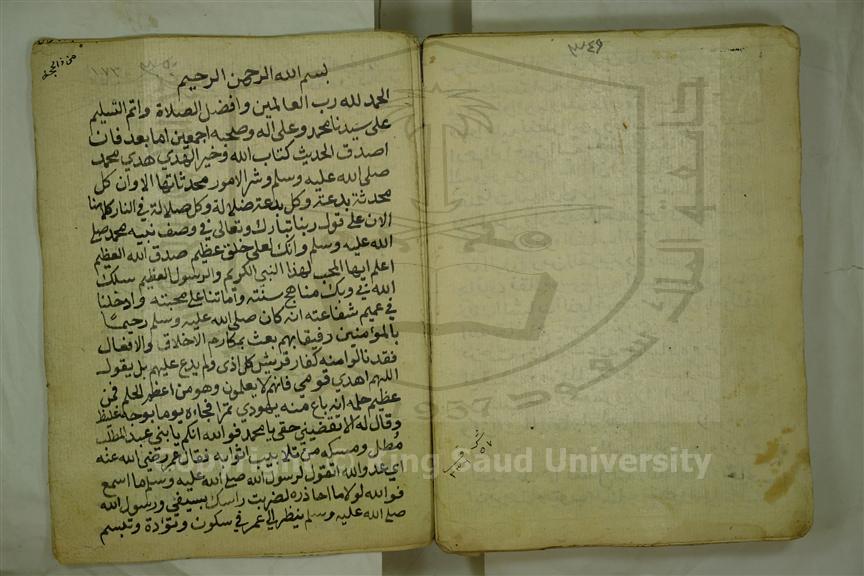 بسم الله الرحمن الرحيم
الحمد لله رب العالمين وافضل الصلاة واتم التسليم
على سيدنا محمد وعلى اله وصحبه اجمعين اما بعد فان
اصدق الحديث كتاب الله وخير الهدي هدي محمد
صلى الله عليه وسلم وشر الامور محدثاتها الا وان كل
محدثة بدعة وكل بدعة ضلالة وكل ضلالة في النار كلامنا
الان على قول ربنا تبارك وتعالى في وصف نبيه محمد صلى
الله عليه وسلم وانك لعلى خلق عظيم صدق الله العظيم
اعلم ايها المحب لهذا النبي الكريم والرسول العظيم سلك
الله بي وبك مناهج سنته واماتنا على محبته وادخلنا
في عميم شفاعته انه كان صلى الله عليه وسلم رحيما
بالمؤمنين رفيقا بهم بعث بمكارم الاخلاق والافعال
فقد نالوا منه كفار قريش كل اذى ولم يدع عليهم بل يقول
اللهم اهدي قومي فانهم لا يعلمون وهو من اعظم الحلم فمن
عظيم حلمه انه باع منه يهودي تمرا فجاءه يوما بوجه غليظ
وقال له لا تقضيني حقي يا محمد فوالله انكم يا بني عبد المطلب
مُطل ومسكه من تلابيب اثوابه فقال عمر رضي الله عنه
اي عدو الله اتقول لرسول الله صلى الله عليه وسلم ما اسمع
فوالله لولا ما احاذره لضربت راسك بسيفي ورسول الله
صلى الله عليه وسلم ينظر الى عمر في سكون وتؤدة وتبسم
جامعة الملك سعود
1957
Copyright © King Saud University